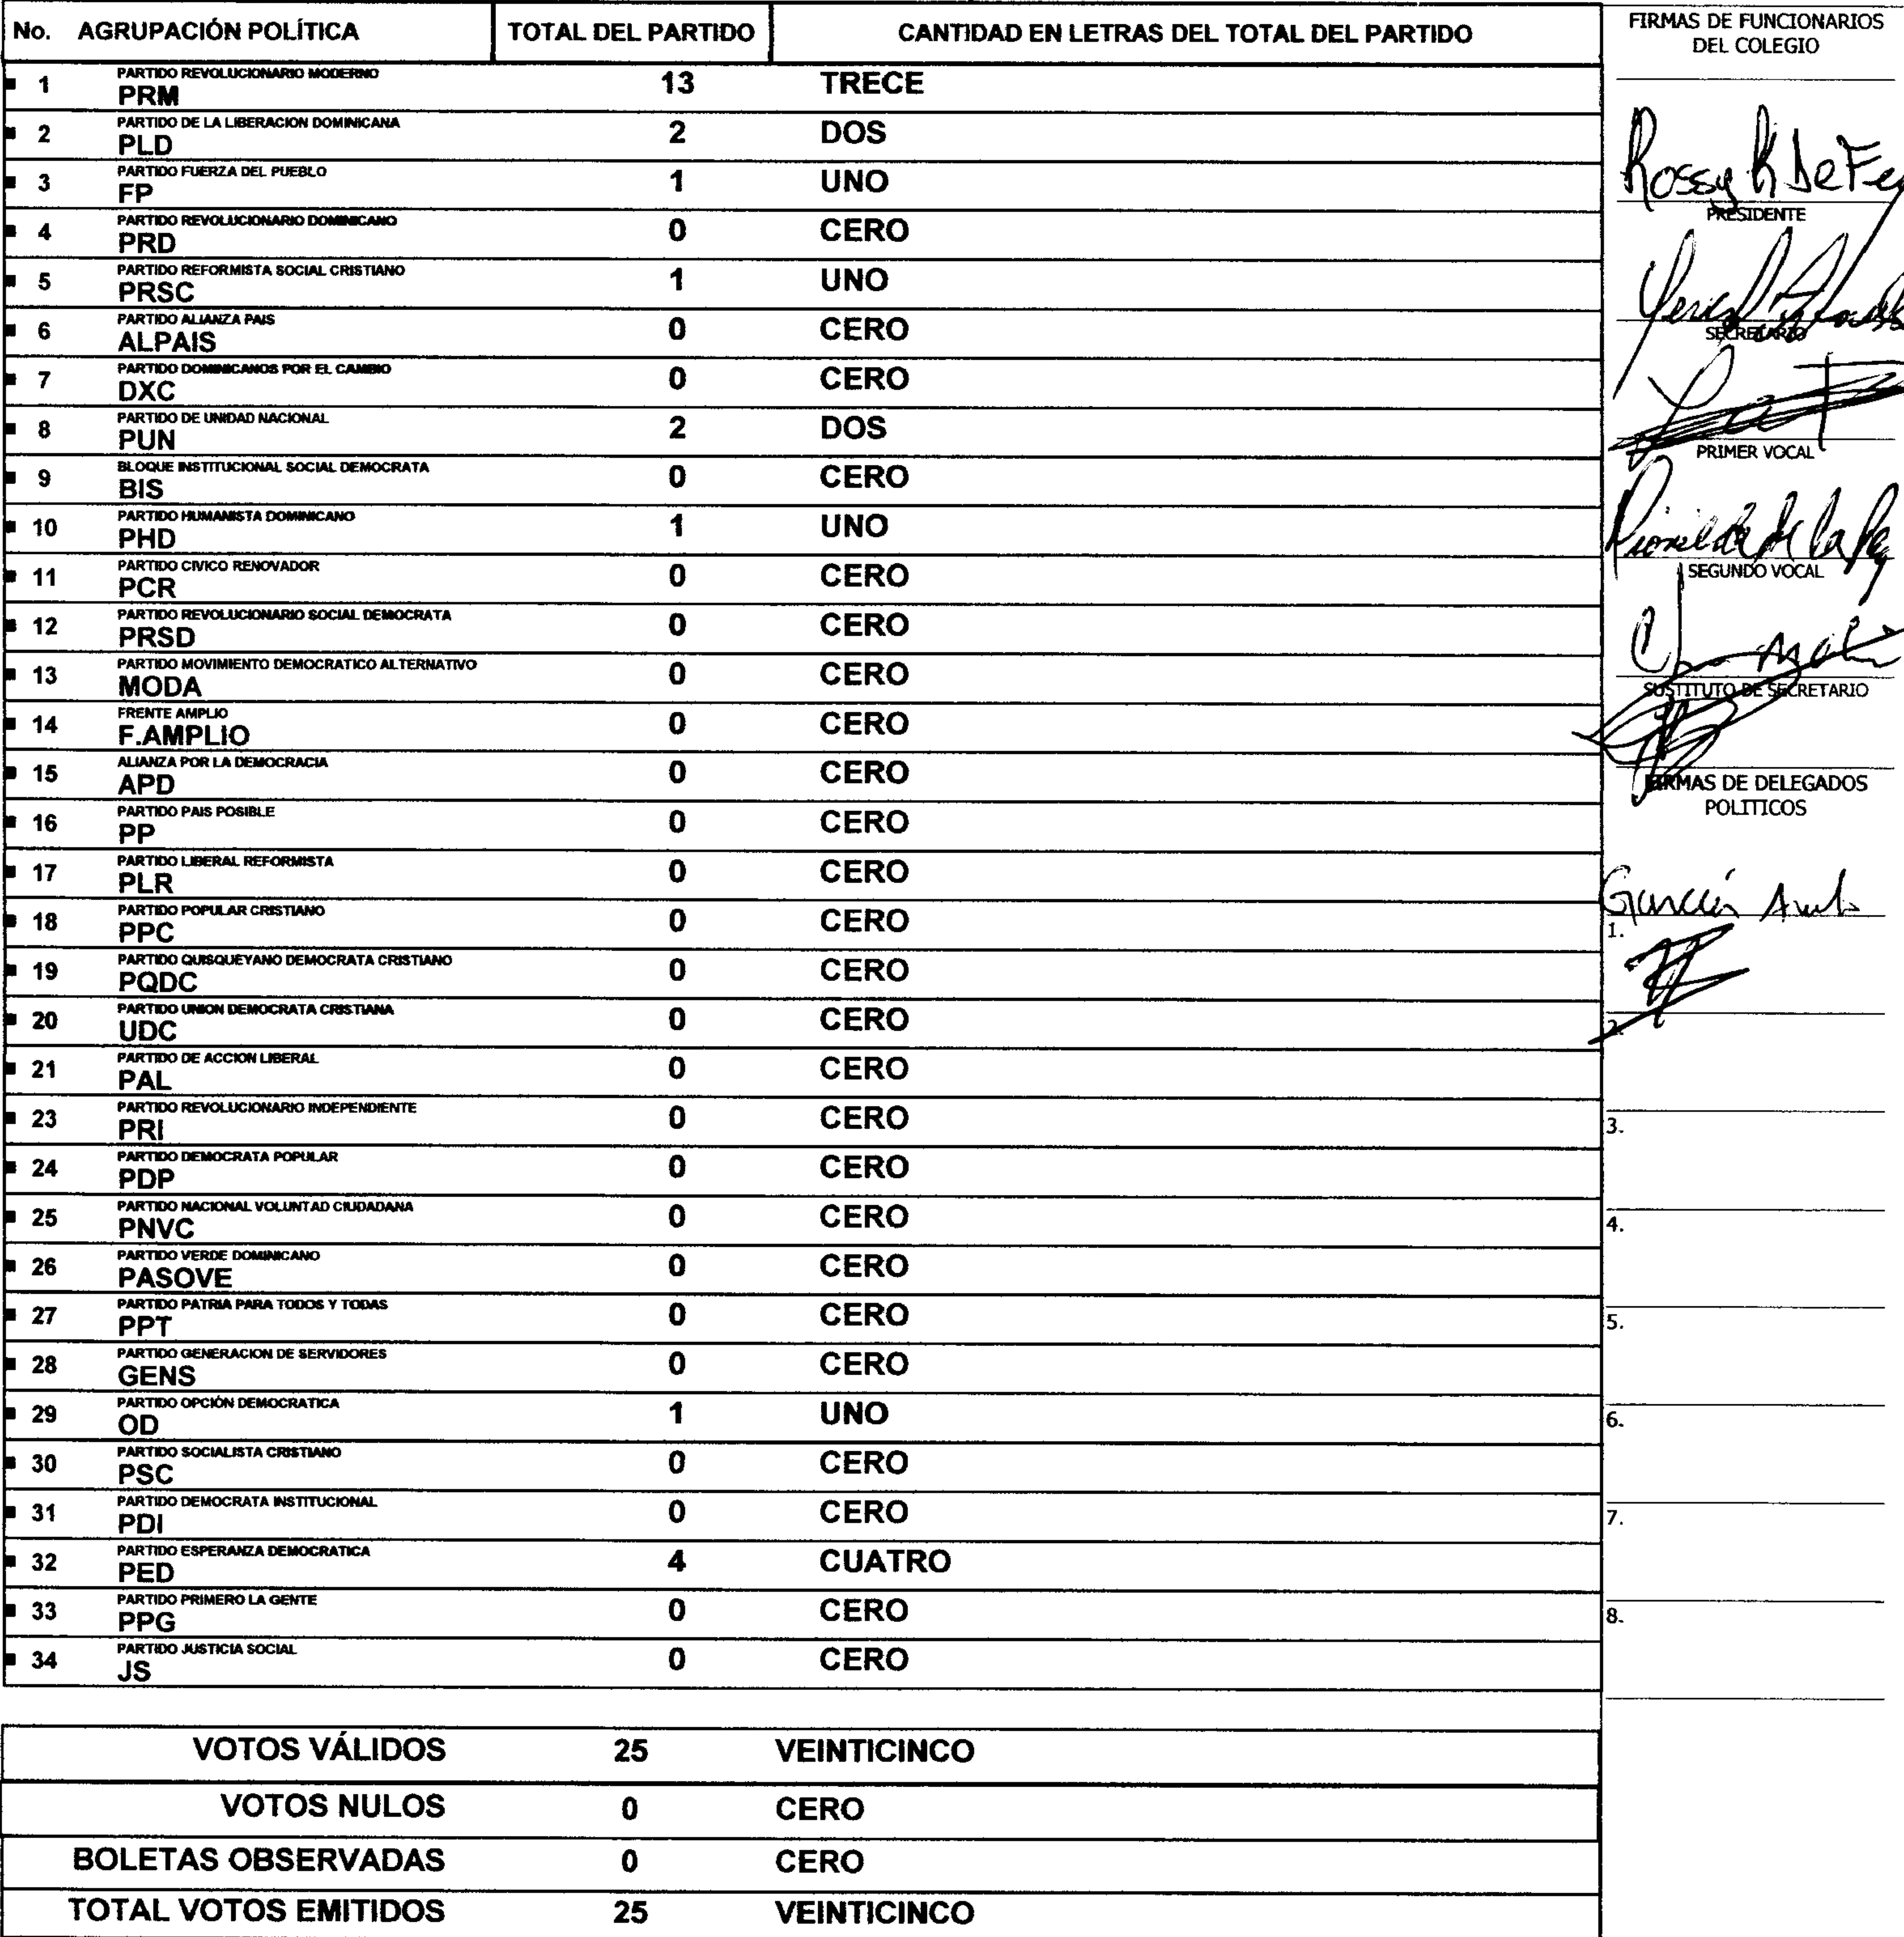 No. AGRUPACIÓN POLÍTICA TOTAL DEL PARTIDO CANTIDAD EN LETRAS DEL TOTAL DEL PARTIDO
PARTIDO REVOLUCIONARIO MODERNO
1 PRM 13 TRECE
PARTIDO DE LA LIBERACION DOMINICANA
2 PLD 2 DOS
PARTIDO FUERZA DEL PUEBLO
3 FP 1 UNO
PARTIDO REVOLUCIONARIO DOMINICANO
4 PRD 0 CERO
PARTIDO REFORMISTA SOCIAL CRISTIANO
5 PRSC 1 UNO
PARTIDO ALIANZA PAIS
6 ALPAIS 0 CERO
PARTIDO DOMINICANOS POR EL CAMBIO
7 DXC 0 CERO
PARTIDO DE UNIDAD NACIONAL
8 PUN 2 DOS
BLOQUE INSTITUCIONAL SOCIAL DEMOCRATA
9 BIS 0 CERO
PARTIDO HUMANISTA DOMINICANO
10 PHD 1 UNO
PARTIDO CIVICO RENOVADOR
11 PCR 0 CERO
PARTIDO REVOLUCIONARIO SOCIAL DEMOCRATA
12 PRSD 0 CERO
PARTIDO MOVIMIENTO DEMOCRATICO ALTERNATIVO
13 MODA 0 CERO
FRENTE AMPLIO
14 F.AMPLIO 0 CERO
ALIANZA POR LA DEMOCRACIA
15 APD 0 CERO
PARTIDO PAIS POSIBLE
16 PP 0 CERO
PARTIDO LIBERAL REFORMISTA
17 PLR 0 CERO
PARTIDO POPULAR CRISTIANO
18 PPC 0 CERO
PARTIDO QUISQUEYANO DEMOCRATA CRISTIANO
19 PQDC 0 CERO
PARTIDO UNION DEMOCRATA CRISTIANA
20 UDC 0 CERO
PARTIDO DE ACCION LIBERAL
21 PAL 0 CERO
PARTIDO REVOLUCIONARIO INDEPENDIENTE
23 PRI 0 CERO
PARTIDO DEMOCRATA POPULAR
24 PDP 0 CERO
PARTIDO NACIONAL VOLUNTAD CIUDADANA
25 PNVC 0 CERO
PARTIDO VERDE DOMINICANO
26 PASOVE 0 CERO
PARTIDO PATRIA PARA TODOS Y TODAS
27 PPT 0 CERO
PARTIDO GENERACION DE SERVIDORES
28 GENS 0 CERO
PARTIDO OPCIÓN DEMOCRATICA
29 OD 1 UNO
PARTIDO SOCIALISTA CRISTIANO
30 PSC 0 CERO
PARTIDO DEMOCRATA INSTITUCIONAL
31 PDI 0 CERO
PARTIDO ESPERANZA DEMOCRATICA
32 PED 4 CUATRO
PARTIDO PRIMERO LA GENTE
33 PPG 0 CERO
PARTIDO JUSTICIA SOCIAL
34 JS 0 CERO
VOTOS VÁLIDOS 25 VEINTICINCO
VOTOS NULOS 0 CERO
BOLETAS OBSERVADAS 0 CERO
TOTAL VOTOS EMITIDOS 25 VEINTICINCO
FIRMAS DE FUNCIONARIOS
DEL COLEGIO
Rossy R De
PRESIDENTE
SECRETARIO
PRIMER VOCAL
de la
SEGUNDO VOCAL
SUSTITUTO DE SECRETARIO
FIRMAS DE DELEGADOS
POLITICOS
García
1.
2.
3.
4.
5.
6.
7.
8.